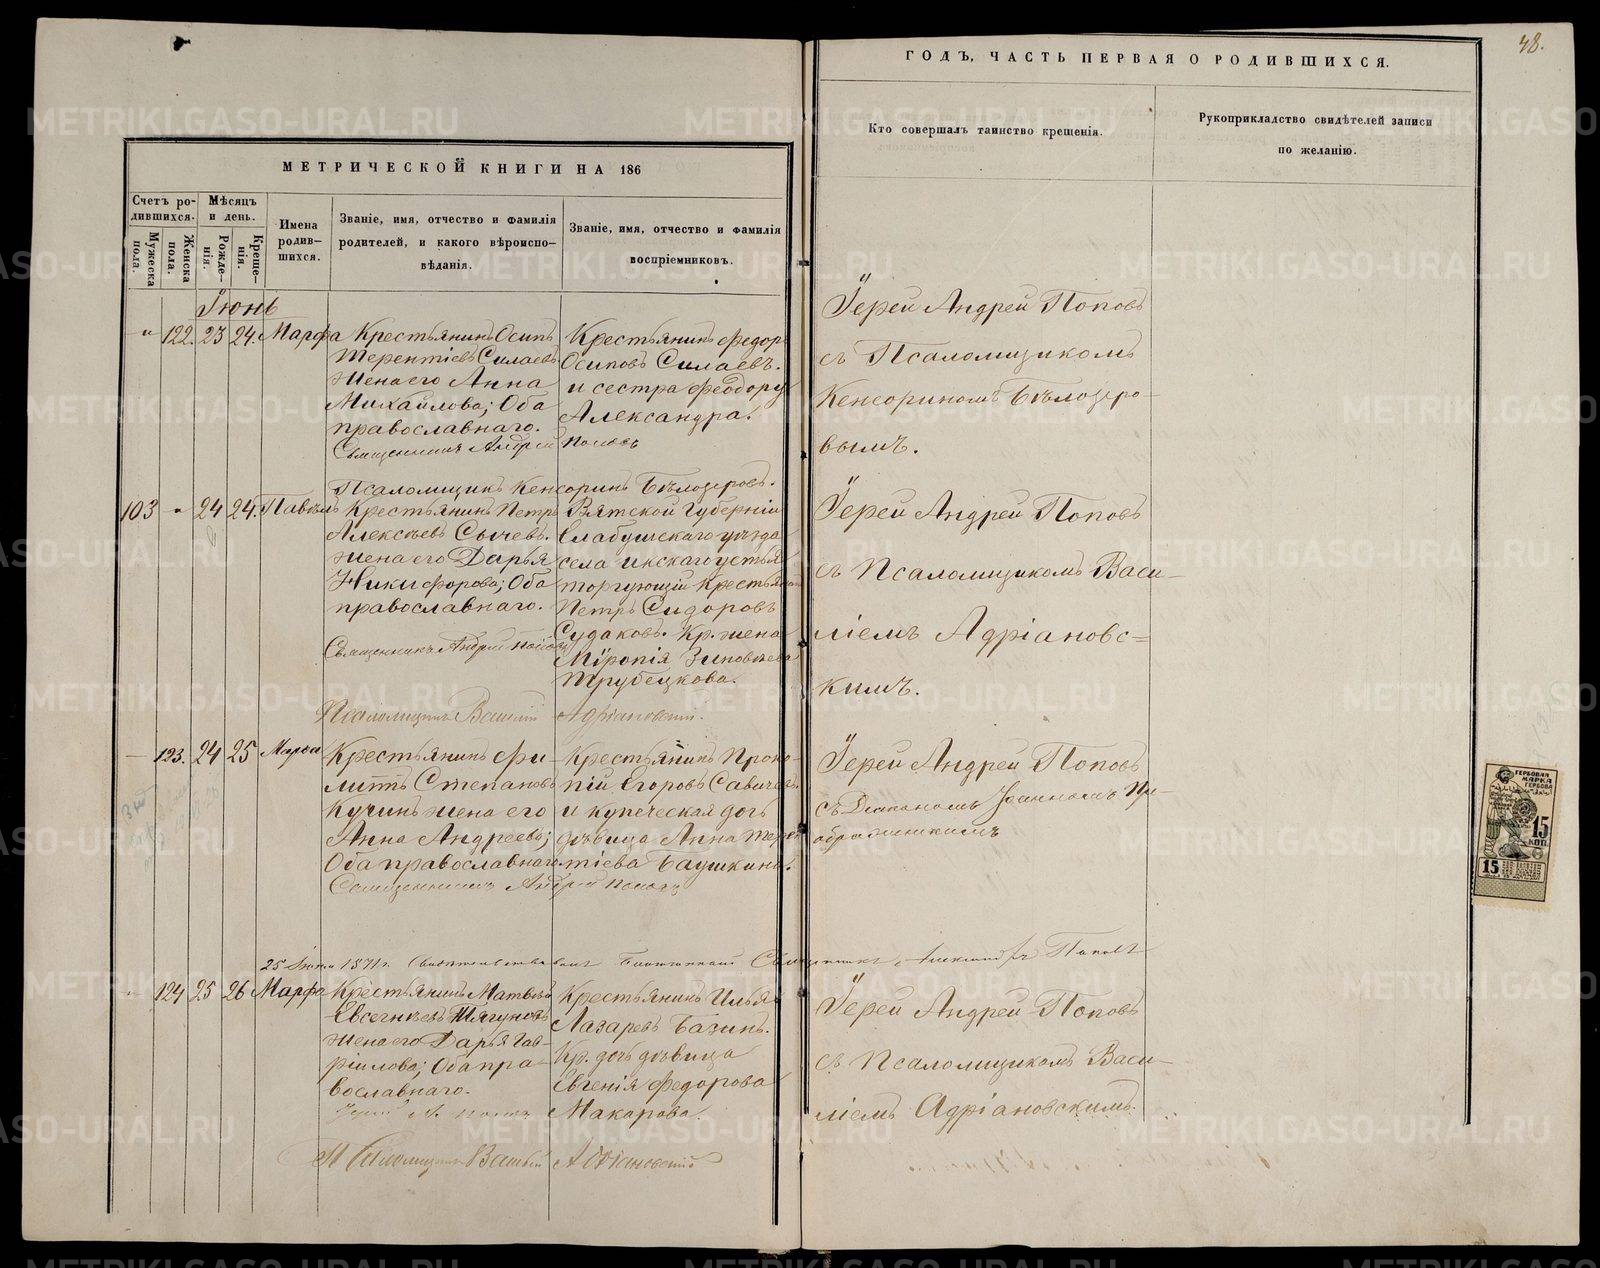 48.
МЕТРИЧЕСКОЙ КНИГИ НА 186
ГОДЪ, ЧАСТЬ ПЕРВАЯ О РОДИВШИХСЯ.
Счетъ ро-
дившихся.
Мужеска пола.
Женска пола.
Мѣсяцъ
и день.
Рожде-
нія.
Креще-
нія.
Имена
родив-
шихся.
Званіе, имя, отчество и фамилія
родителей, и какого вѣроиспо-
вѣданія.
Званіе, имя, отчество и фамилія
воспріемниковъ.
Кто совершалъ таинство крещенія.
Рукоприкладство свидѣтелей записи
по желанію.
Іюнь
" 122. 23 24. Марфа
Крестьянинъ Осипъ
Терентіевъ Силаевъ
жена его Анна
Михайлова; Оба
православнаго.
Крестьянинъ Федоръ
Осиповъ Силаевъ.
и сестра Феодору
Александра.
Священникъ Андрей Поповъ
Псаломщикъ Кенсоринъ Бѣлозеровъ.
Іерей Андрей Поповъ
съ Псаломщикомъ
Кенсориномъ Бѣлозеро-
вымъ.
103 " 24 24. Павелъ
Крестьянинъ Петръ
Алексѣевъ Сычевъ.
жена его Дарья
Никифорова; Оба
православнаго.
Вятской Губерніи
Елабужскаго уѣзда
села Икскаго устья
торгующій крестьянинъ
Петръ Сидоровъ
Судаковъ. Кр. жена
Мѵропія Зиновьева
Трубецкова.
Священникъ Андрей Поповъ
Псаломщикъ Василій Адріановскій.
Іерей Андрей Поповъ
съ Псаломщикомъ Васи-
ліемъ Адріановс=
кимъ.
123. 24 25 Марфа
Крестьянинъ Фи-
литъ Степановъ
Кучинъ жена его
Анна Андреева;
Оба православнаго.
Крестьянинъ Проко-
пій Егоровъ Савичевъ
и купеческая дочь
дѣвица Анна Терен
тіева Баушкина.
Священникъ Андрей Поповъ
Іерей Андрей Поповъ
съ Діакономъ Іоанномъ Пр-
ображенскимъ
25 1871 г. Священникъ Поповъ
124 25 26 Марфа
Крестьянинъ Матвѣй
Евсегнѣевъ Тягуновъ
жена его Дарья Гав-
ріилова; Оба пра-
вославнаго.
Крестьянинъ Илья
Лазаревъ Базинъ.
Кр. дочь дѣвица
Евгенія Федорова
Макарова.
Псаломщикъ Василій Адріановскій
Іерей Андрей Поповъ
съ Псаломщикомъ Васи-
ліемъ Адріановскимъ.
ГЕРБОВАЯ
МАРКА
15
КОП.
15
METRIKI.GASO-URAL.RU